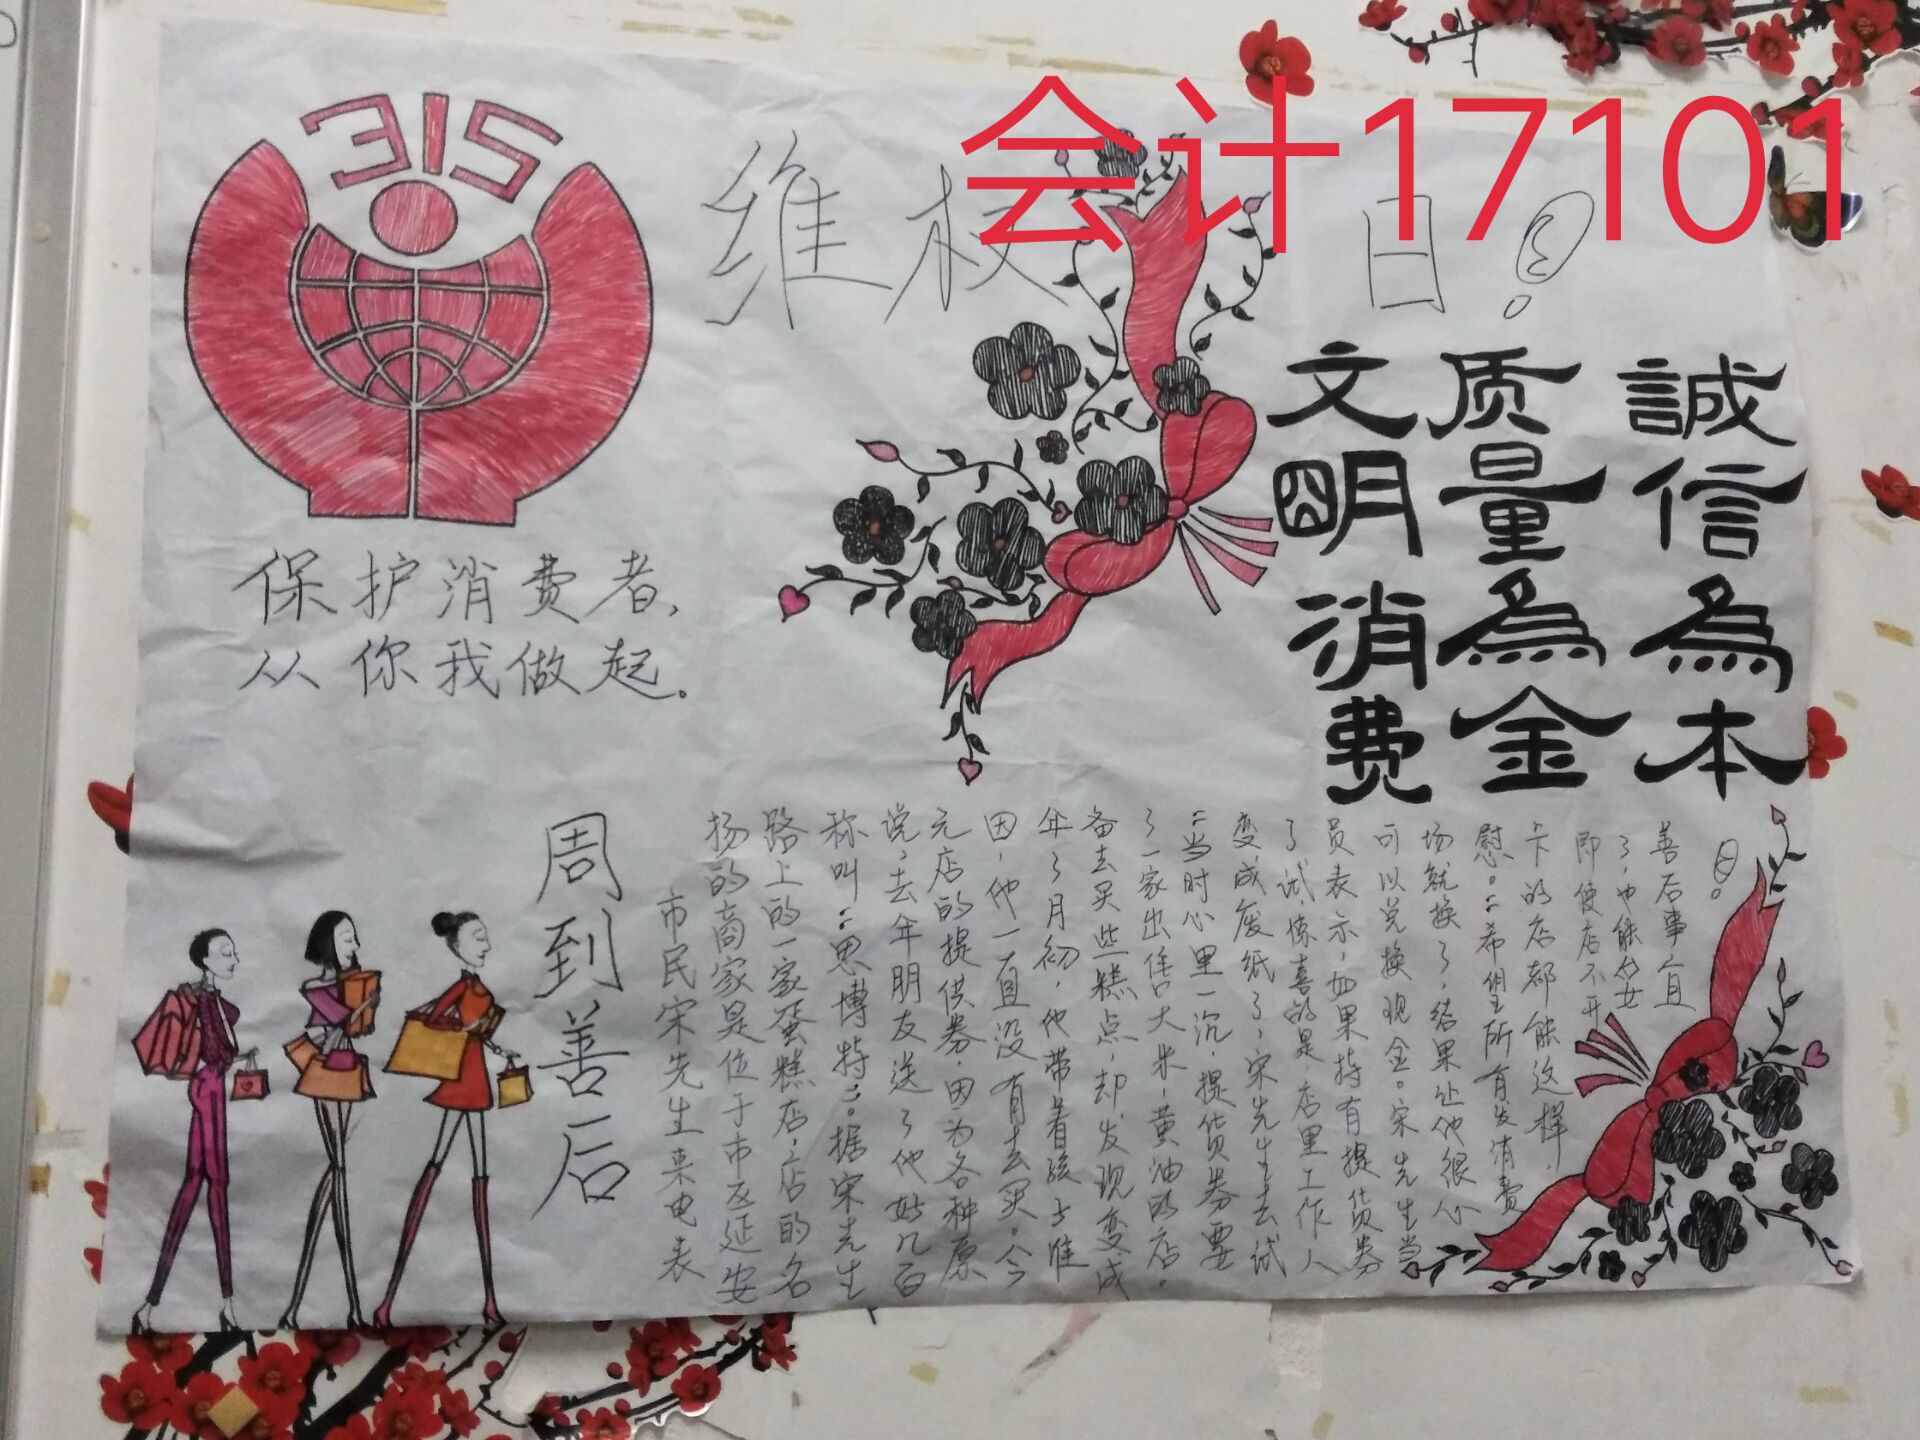 会计17101
315
维权日!
保护消费者,
从你我做起。
誠信為本
质量為金
文明消费
周到善后
市民宋先生来电表
扬的商家是位于市区延安
路上的一家蛋糕店,店的名
称叫:"思博特"。据宋先生
说,去年朋友送了他好几百
元店的提供券,因为各种原
因,他一直没有去买。今
年3月初,他带着孩子准
备去买些糕点,却发现变成
了一家出售大米,黄油的店。
"当时心里一沉,提货券要
变成废纸了,宋先生去试
了试,惊喜的是,店里工作人
员表示,如果持有提货券
可以兑换现金。宋先生当
场就换了,结果让他很心
慰。"希望所有发消费
卡的店都能这样,
即使店不开
了,也能妥
善后事宜